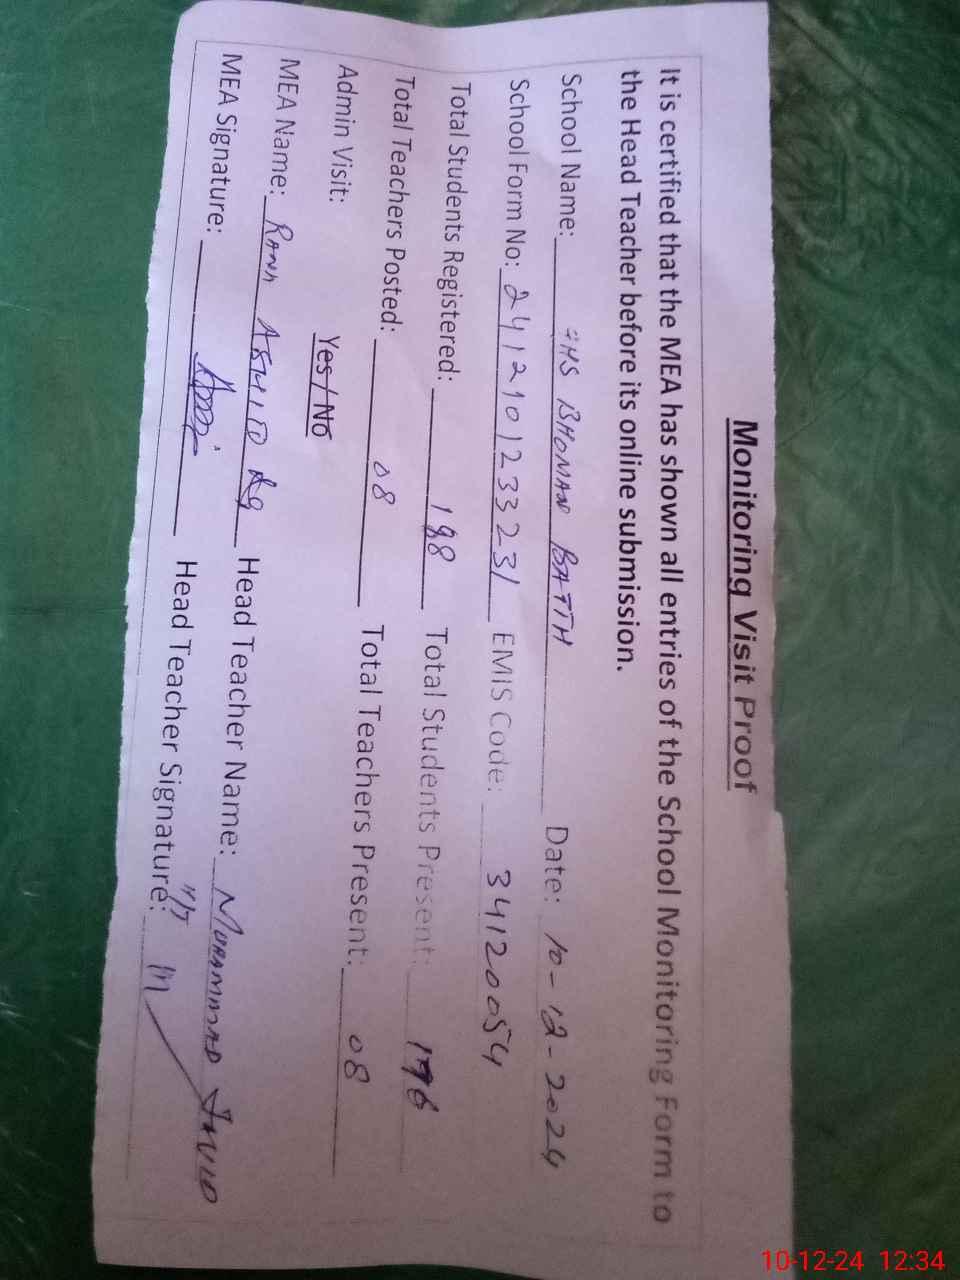 Monitoring Visit Proof
It is certified that the MEA has shown all entries of the School Monitoring Form to
the Head Teacher before its online submission.
School Name: GHS BHOMAN BATTH Date: 10-12-2024
School Form No: 2412101233231 EMIS Code: 34120054
Total Students Registered: 188 Total Students Present: 176
Total Teachers Posted: 08 Total Teachers Present: 08
Admin Visit: Yes / No
MEA Name: RANA Head Teacher Name: MUHAMMAD JAVID
MEA Signature: Head Teacher Signature:
10-12-24 12:34